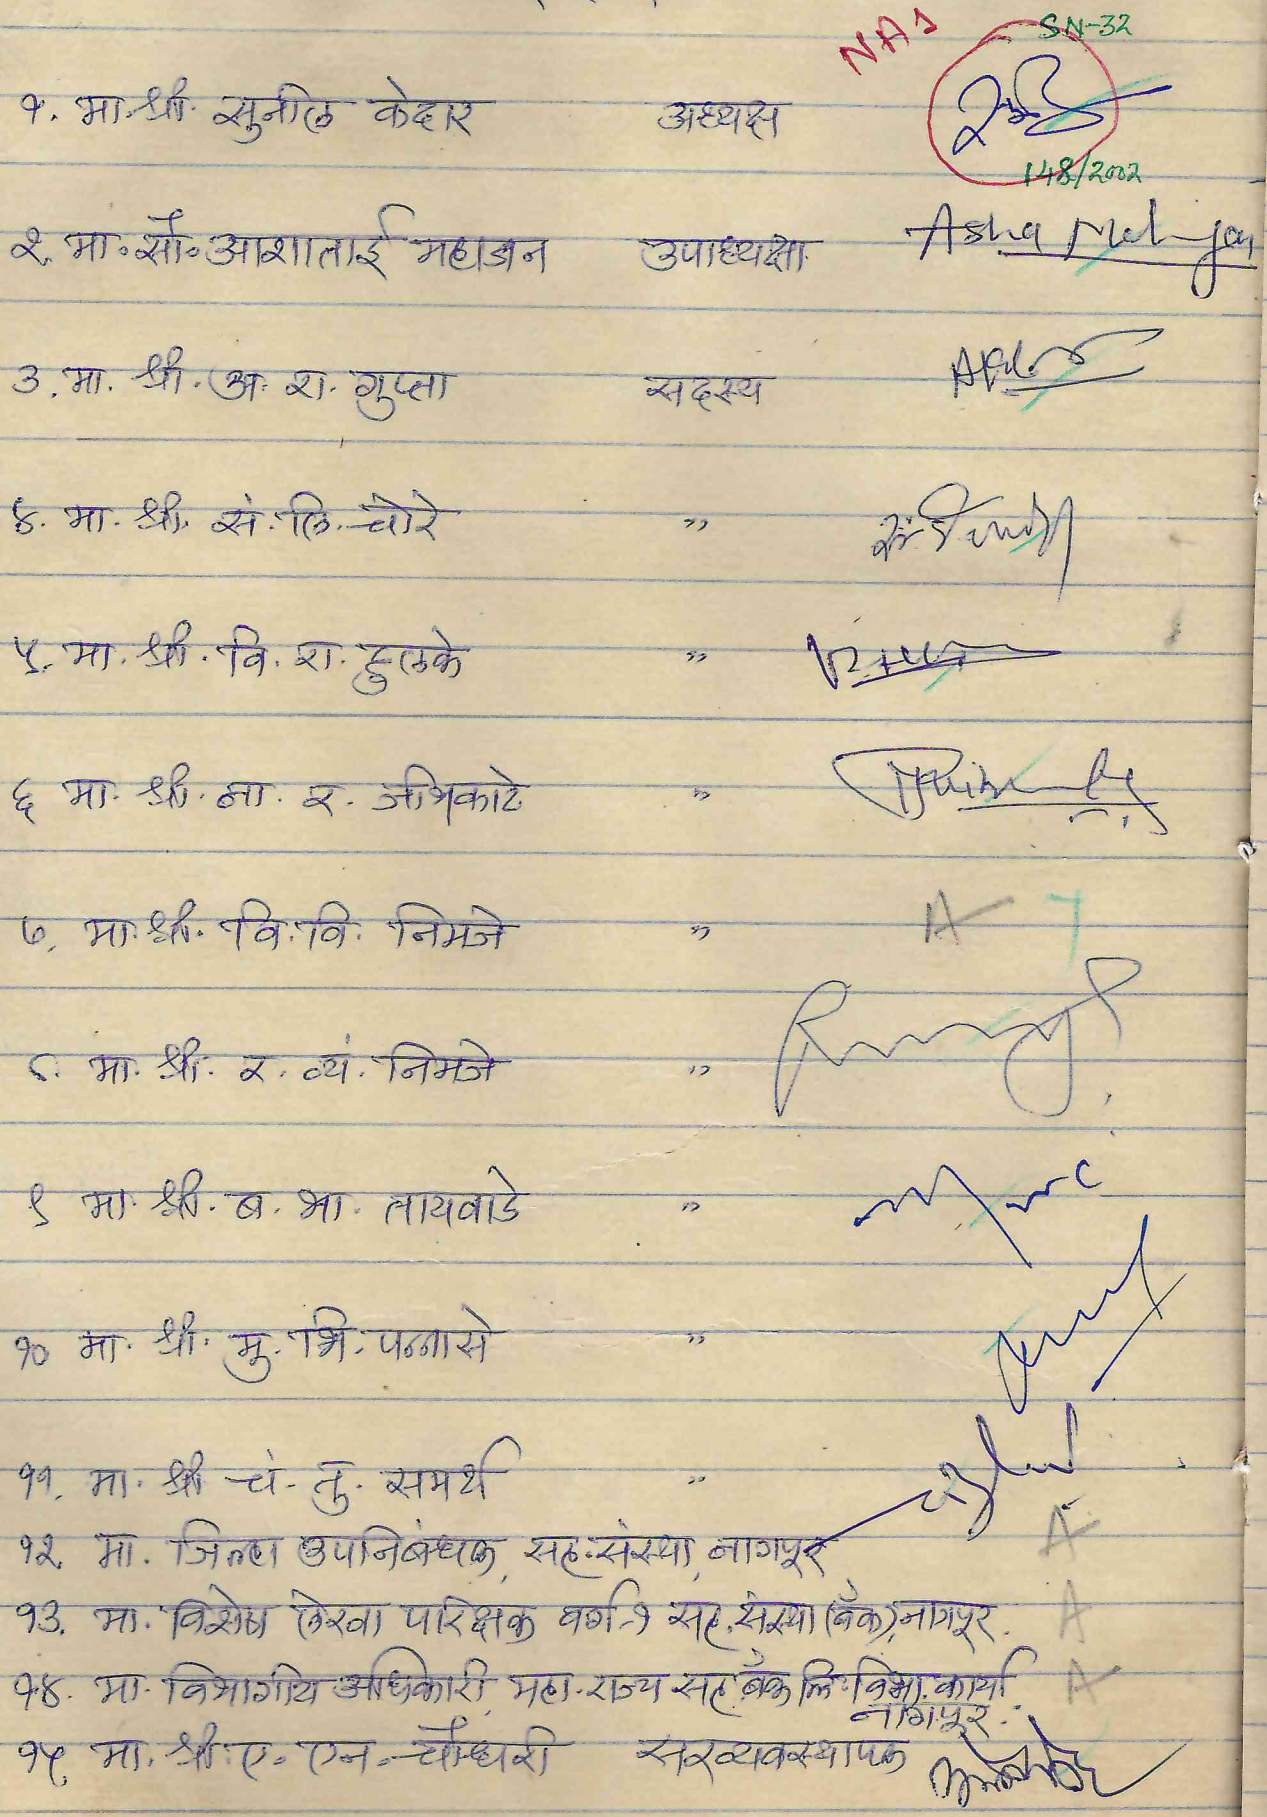 NA1 SN-32
१. मा.श्री. सुनील केदार अध्यक्ष
148/2002
२. मा॰सौ॰आशाताई महाजन उपाध्यक्षा Asha Mahajan
३. मा. श्री. अ. रा. गुप्ता सदस्य
४. मा. श्री. सं. लि. चोरे "
५. मा. श्री. वि. रा. हुलके "
६ मा. श्री. ना. र. जीभकाटे "
७. मा.श्री. वि. वि. निमजे " A
८. मा. श्री. र. व्यं. निमजे "
९ मा. श्री. ब. भा. तायवाडे "
१० मा. श्री. मु. भि. पन्नासे "
११. मा. श्री. चं. तु. समर्थ "
१२. मा. जिल्हा उपनिबंधक, सह.संस्था, नागपूर A
१३. मा. विशेष लेखा परिक्षक वर्ग-१ सह.संस्था (बँक),नागपूर. A
१४. मा. विभागीय अधिकारी, महा.राज्य सह.बँक लि. विभा.कार्या. A
नागपूर.
१५. मा. श्री. ए॰ एन॰ चौधरी सरव्यवस्थापक